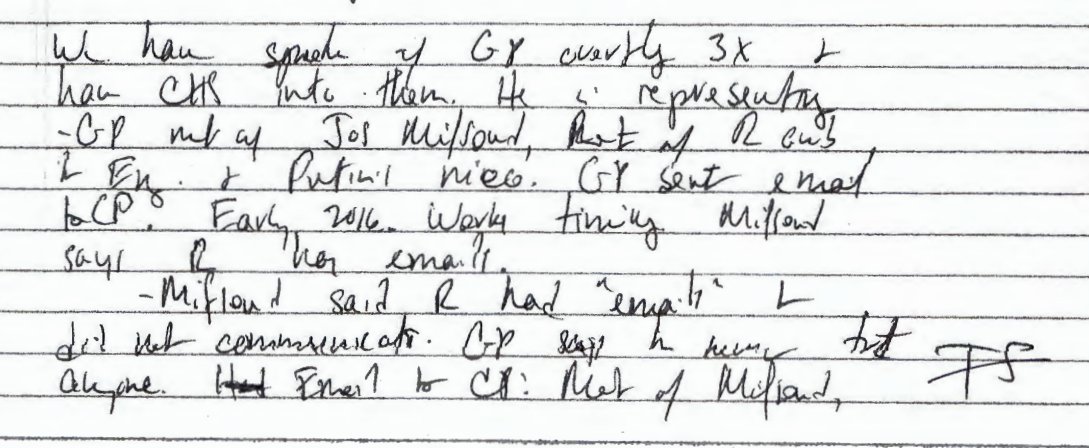 We have spoken w/ GP overtly 3X &
have CHS into them. He is representing
-GP met w/ Jos Mifsoud, Met w/ R amb
in Eng. & Putin's niece. GP sent email
to CP. Early 2016. Works timing Mifsoud
says R has emails.
-Mifsoud said R had "emails" &
did not communicate. GP says he never told
anyone. Email to CP: Met w/ Mifsoud,
TS